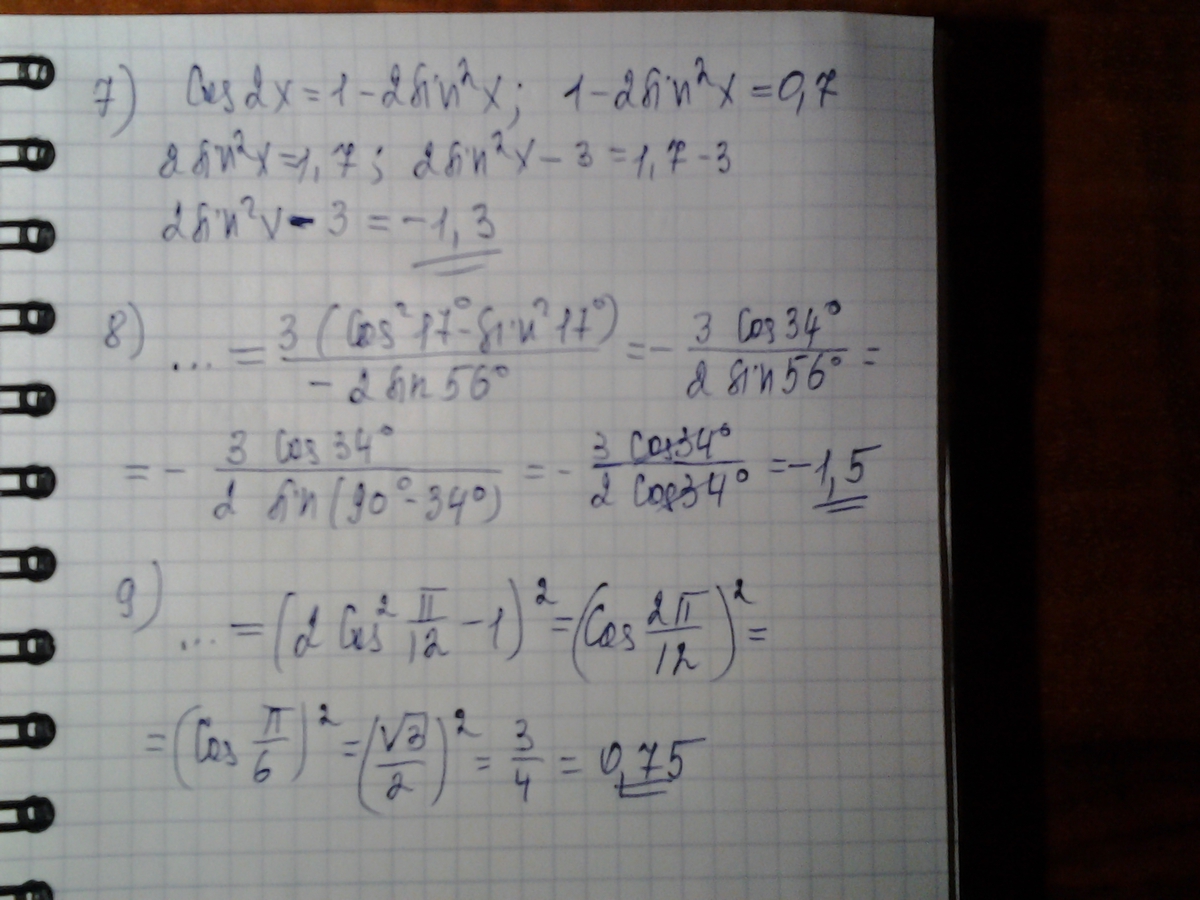 7) Cos 2x = 1 - 2 sin²x; 1 - 2 sin²x = 0,7
2 sin²x = 1,7; 2 sin²x - 3 = 1,7 - 3
2 sin²x - 3 = -1,3
8) ... = 3 (Cos²17° - sin²17°) / -2 sin 56° = - 3 Cos 34° / 2 sin 56° =
= - 3 Cos 34° / 2 sin (90° - 34°) = - 3 Cos 34° / 2 Cos 34° = -1,5
9) ... = (2 Cos² π/12 - 1)² = (Cos 2π/12)² =
= (Cos π/6)² = (√3/2)² = 3/4 = 0,75